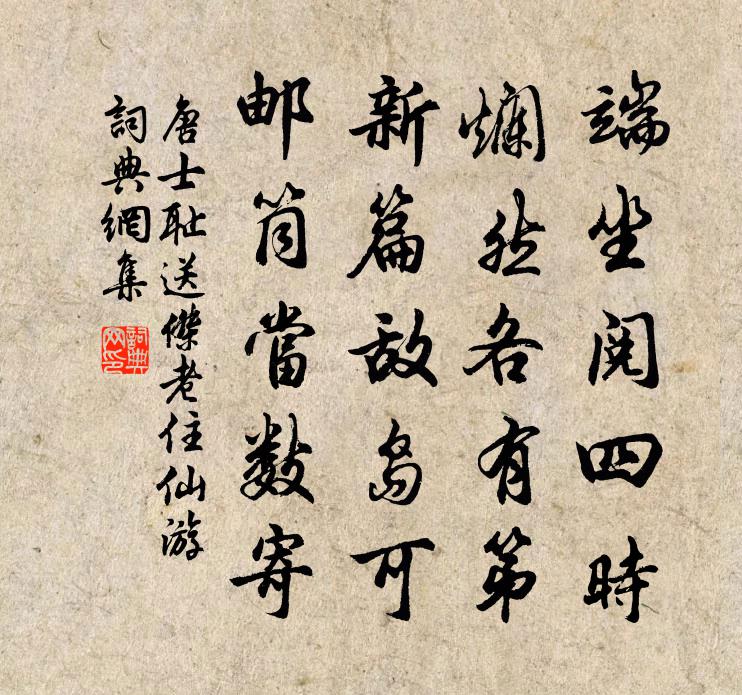 端坐閱四時
爛然各有第
新篇敌岛可
邮筒當數寄
唐士耻送傑老住仙游
詞典網集
詞典网印